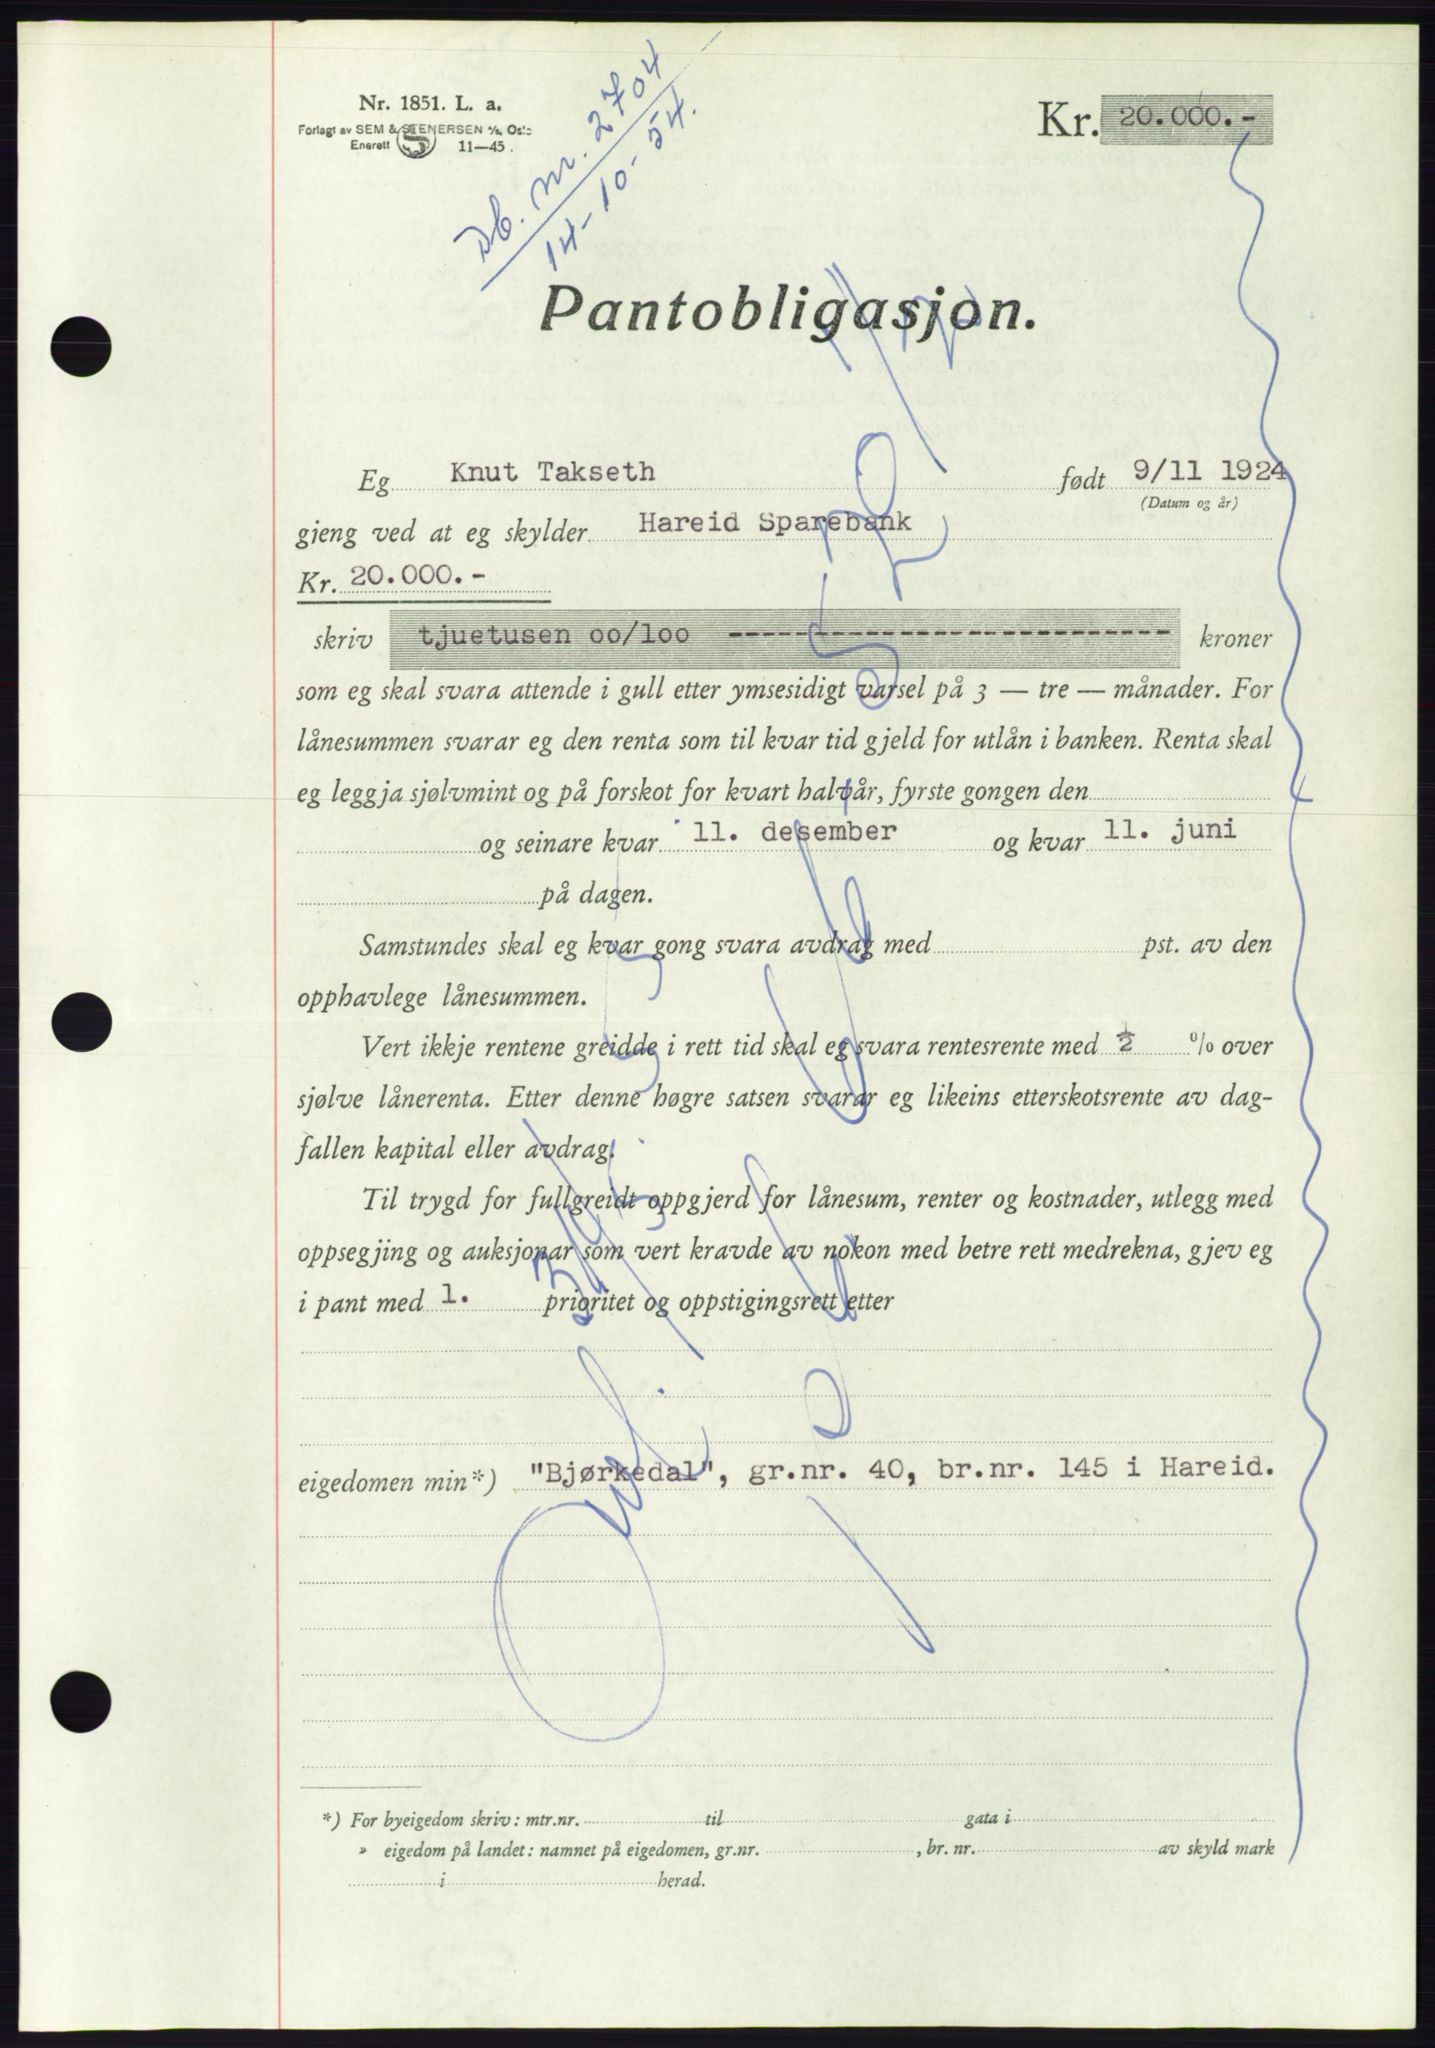 Nr. 1851. L. a.
Forlagt av SEM & STENERSEN A/S, Oslo
Enerett S 11—45.
Db. nr. 2704
14-10-54.
Kr. 20.000.-
Pantobligasjon.
Eg Knut Takseth født 9/11 1924
(Datum og år)
gjeng ved at eg skylder Hareid Sparebank
Kr. 20.000.-
skriv tjuetusen oo/loo ------------------------------ kroner
som eg skal svara attende i gull etter ymsesidigt varsel på 3 — tre — månader. For
lånesummen svarar eg den renta som til kvar tid gjeld for utlån i banken. Renta skal
eg leggja sjølvmint og på forskot for kvart halvår, fyrste gongen den
og seinare kvar 11. desember og kvar 11. juni
på dagen.
Samstundes skal eg kvar gong svara avdrag med pst. av den
opphavlege lånesummen.
Vert ikkje rentene greidde i rett tid skal eg svara rentesrente med ½ % over
sjølve lånerenta. Etter denne høgre satsen svarar eg likeins etterskotsrente av dag-
fallen kapital eller avdrag.
Til trygd for fullgreidt oppgjerd for lånesum, renter og kostnader, utlegg med
oppsegjing og auksjonar som vert kravde av nokon med betre rett medrekna, gjev eg
i pant med 1. prioritet og oppstigingsrett etter
eigedomen min*) "Bjørkedal", gr.nr. 40, br.nr. 145 i Hareid.
*) For byeigedom skriv: mtr.nr. til gata i
» eigedom på landet: namnet på eigedomen, gr.nr. , br. nr. av skyld mark
i herad.